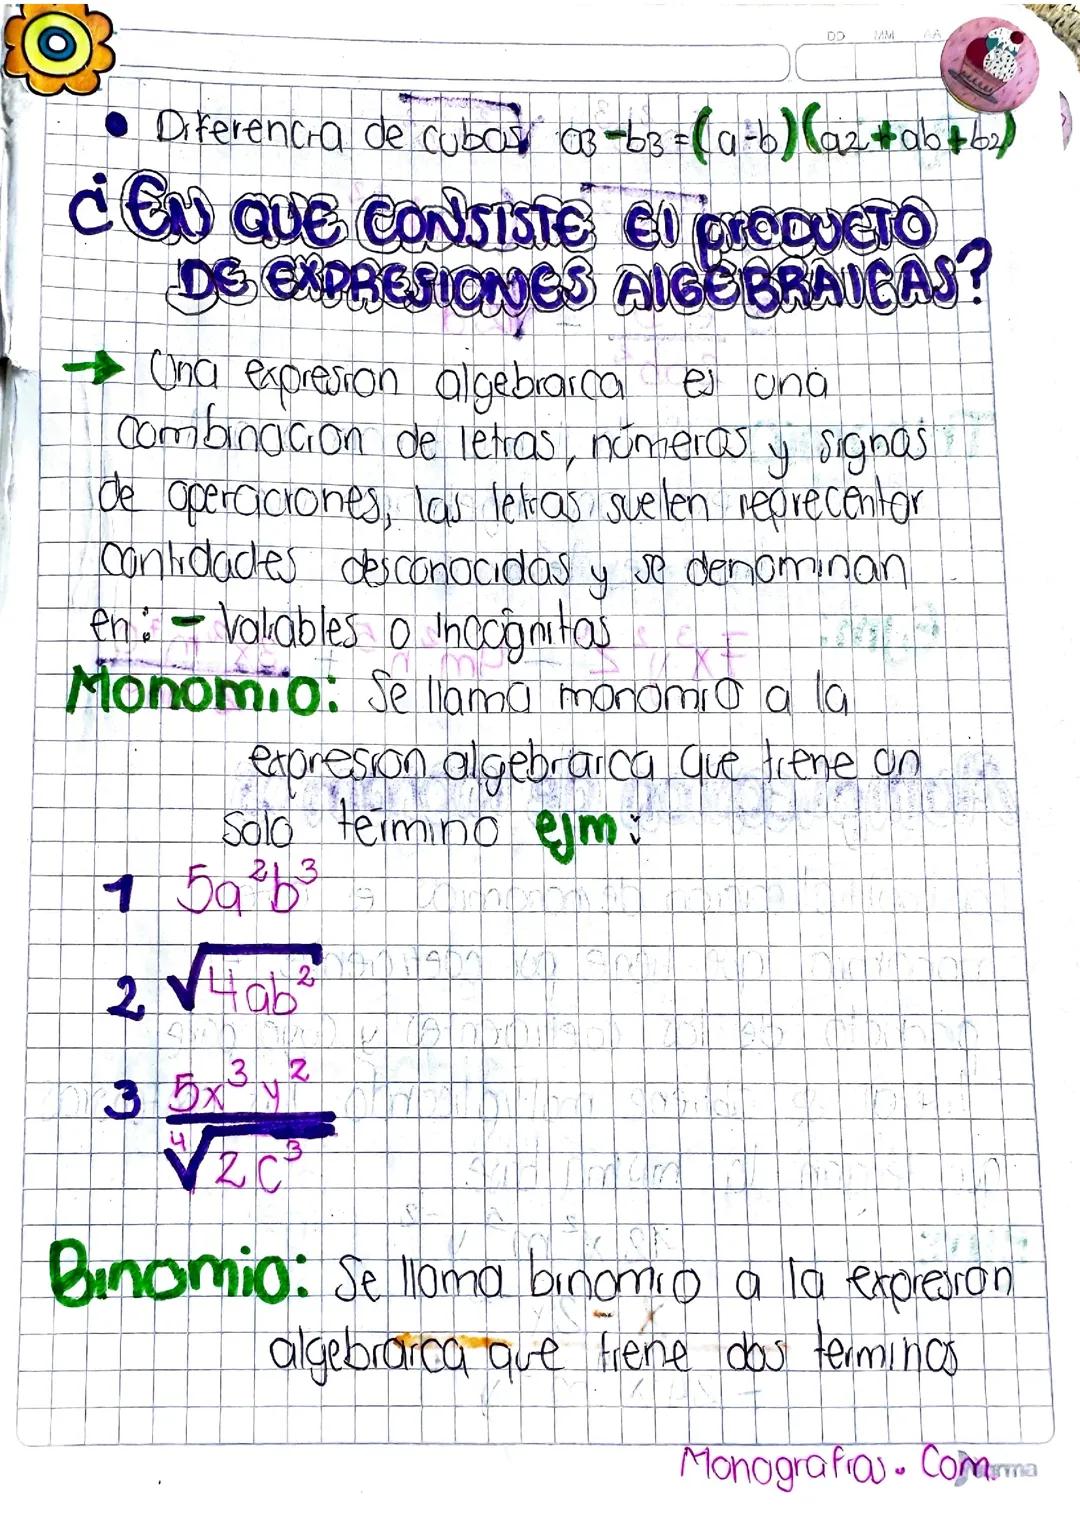 DD MM AA
• Diferencia de cubos a3-b3=(a-b)(a2+ab+b2)
¿EN QUE CONSISTE El prODUCTO
DE EXPRESIONES AlGEBRAICAS?
→ Una expresion algebraica es una
combinacion de letras, números y signos
de operaciones, las letras suelen reprecentar
cantidades desconocidas y se denominan
en: - Variables o Incógnitas
Monomio: Se llama monomio a la
expresion algebraica que tiene un
solo término ejm:
1 5a²b³
2 √4ab²
3 5x³y²
⁴√2c³
Binomio: Se llama binomio a la expresion
algebraica que tiene dos terminos
Monografias.Com.